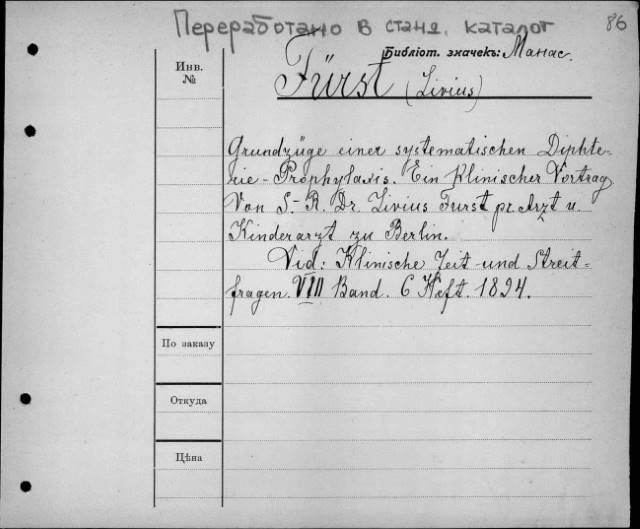 Переработано в станд. каталог
86
Библіот. значекъ: Манас.
Инв.
№
Fürst (Livius)
Grundzüge einer systematischen Diphte-
rie-Prophylaxis. Ein Klinischer Vortrag
Von S.-R. Dr. Livius Furst pr. Arzt u.
Kinderarzt zu Berlin.
Vid: Klinische Zeit- und Streit-
fragen. VIII Band. 6 Heft. 1894.
По заказу
Откуда
Цѣна